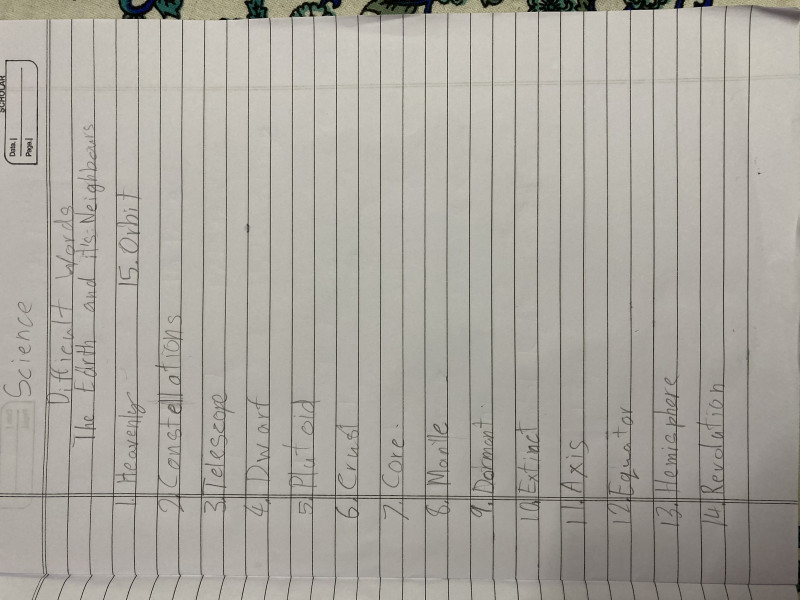 SCHOLAR
Date |
Page |
Science
Difficult Words
The Earth and it's Neighbours
1. Heavenly 15. Orbit
2. Constellations
3. Telescope
4. Dwarf
5. Plutoid
6. Crust
7. Core.
8. Mantle
9. Dormant.
10. Extinct
11. Axis
12. Equator
13. Hemisphere
14. Revolution